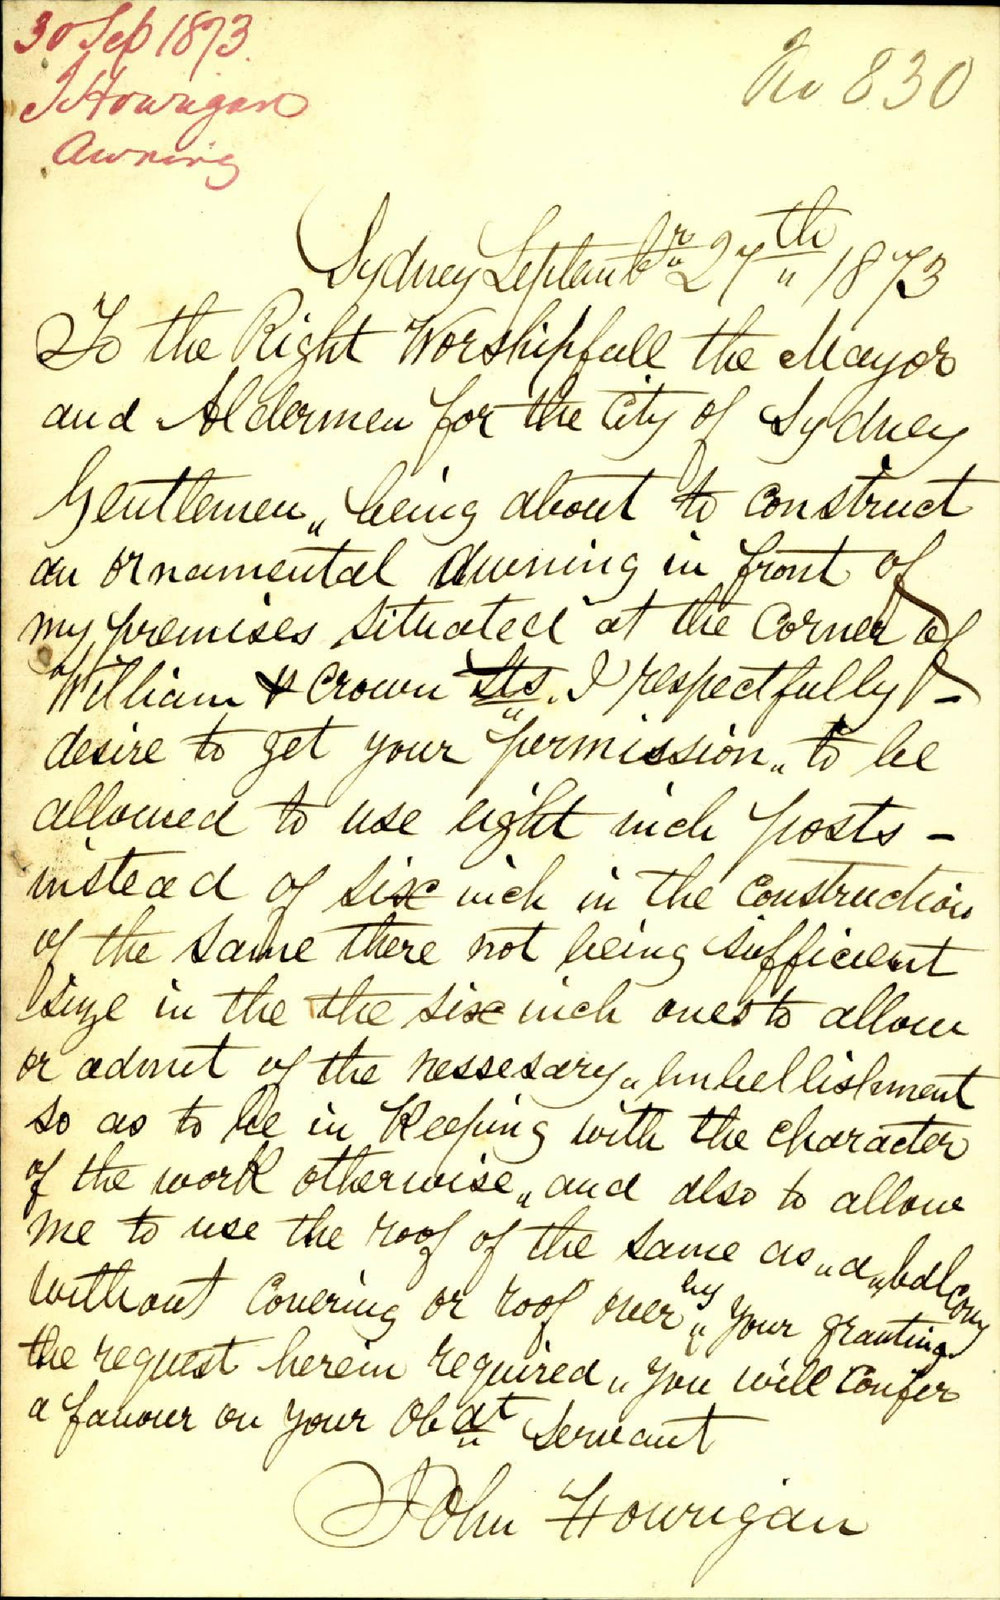 30 Sep 1873
J Hourigan
Awning
No 830
Sydney Septembr 27th 1873
To the Right Worshipfull the Mayor
and Aldermen for the City of Sydney
Gentlemen „ being about to construct
an ornamental Awning in front of
my premises situated at the Corner of
William & Crown Sts. I respectfully –
desire to get your permission „ to be
allowed to use eight inch posts –
instead of six inch in the construction
of the same there not being sufficient
size in the the six inch ones to allow
or admit of the nessesary „ Embellishment
so as to be in Keeping with the character
of the work otherwise „ and also to allow
me to use the roof of the same as „ a „ balcony
without Covering or roof over „ by your granting
the request herein required „ you will Confer
a favour on your Obdt Servant
John Hourigan